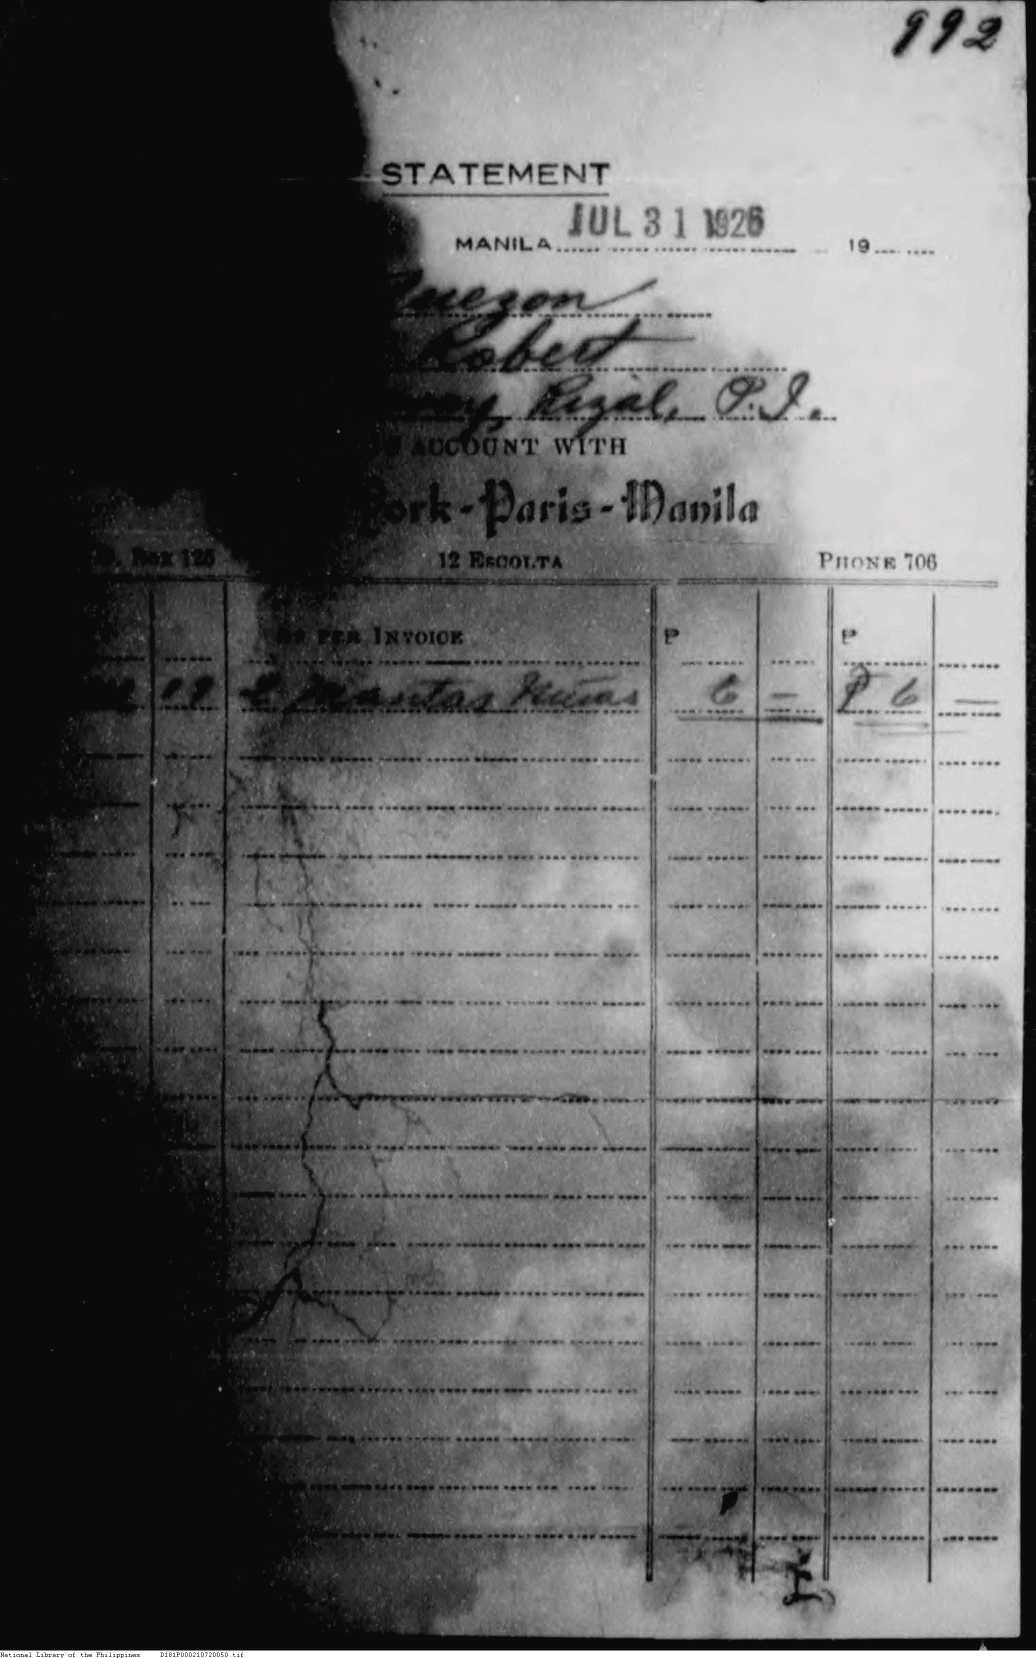 992
STATEMENT
MANILA JUL 31 1926 19
Quezon
Robert
Rizal, P.I.
ACCOUNT WITH
York-Paris-Manila
Box 126 12 ESCOLTA PHONE 706
AS PER INVOICE P P
2 Mantas Niñas 6 - ₱ 6 -
National Library of the Philippines D181P000210720050.tif